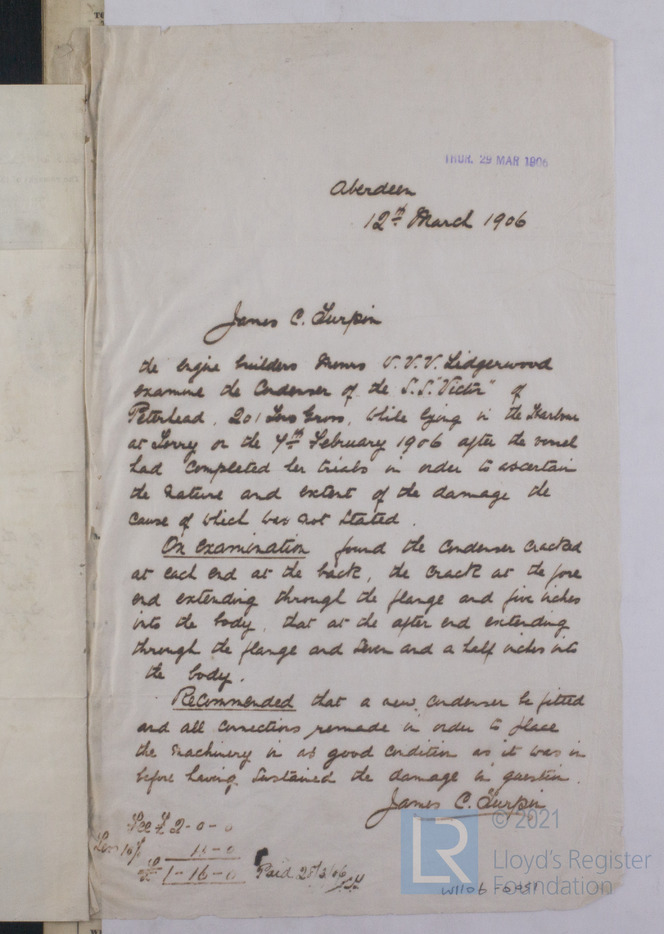 THUR. 29 MAR 1906
Aberdeen
12th March 1906
James C. Turpin
the engine builders Messrs V.V.V. Lidgerwood
examine the Condenser of the S.S. "Victor" of
Peterhead, 201 Tons Gross, while lying in the Harbour
at Torry on the 7th February 1906 after the vessel
had completed her trials in order to ascertain
the nature and extent of the damage the
cause of which was not stated.
On examination found the condenser cracked
at each end at the back, the crack at the fore
end extending through the flange and five inches
into the body, that at the after end extending
through the flange and seven and a half inches into
the body.
Recommended that a new condenser be fitted
and all connections remade in order to place
the machinery in as good condition as it was in
before having sustained the damage in question.
James C. Turpin
Fee £ 2-0-0
Less 10%
£ 1-16-0 Paid 28/3/06
© 2021
LR Lloyd's Register
Foundation
W1106-0051